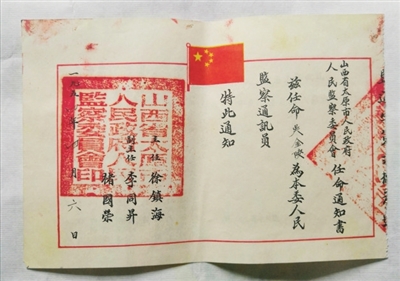 山西省太原市人民政府
人民監察委員會 任命通知書
茲任命 為本委人民
監察通訊員
特此通知
主任 徐鎮海
副主任 李同昇
褚國榮
一九五 年 月 六 日
山西省太
人民政府人民
監察委員會印